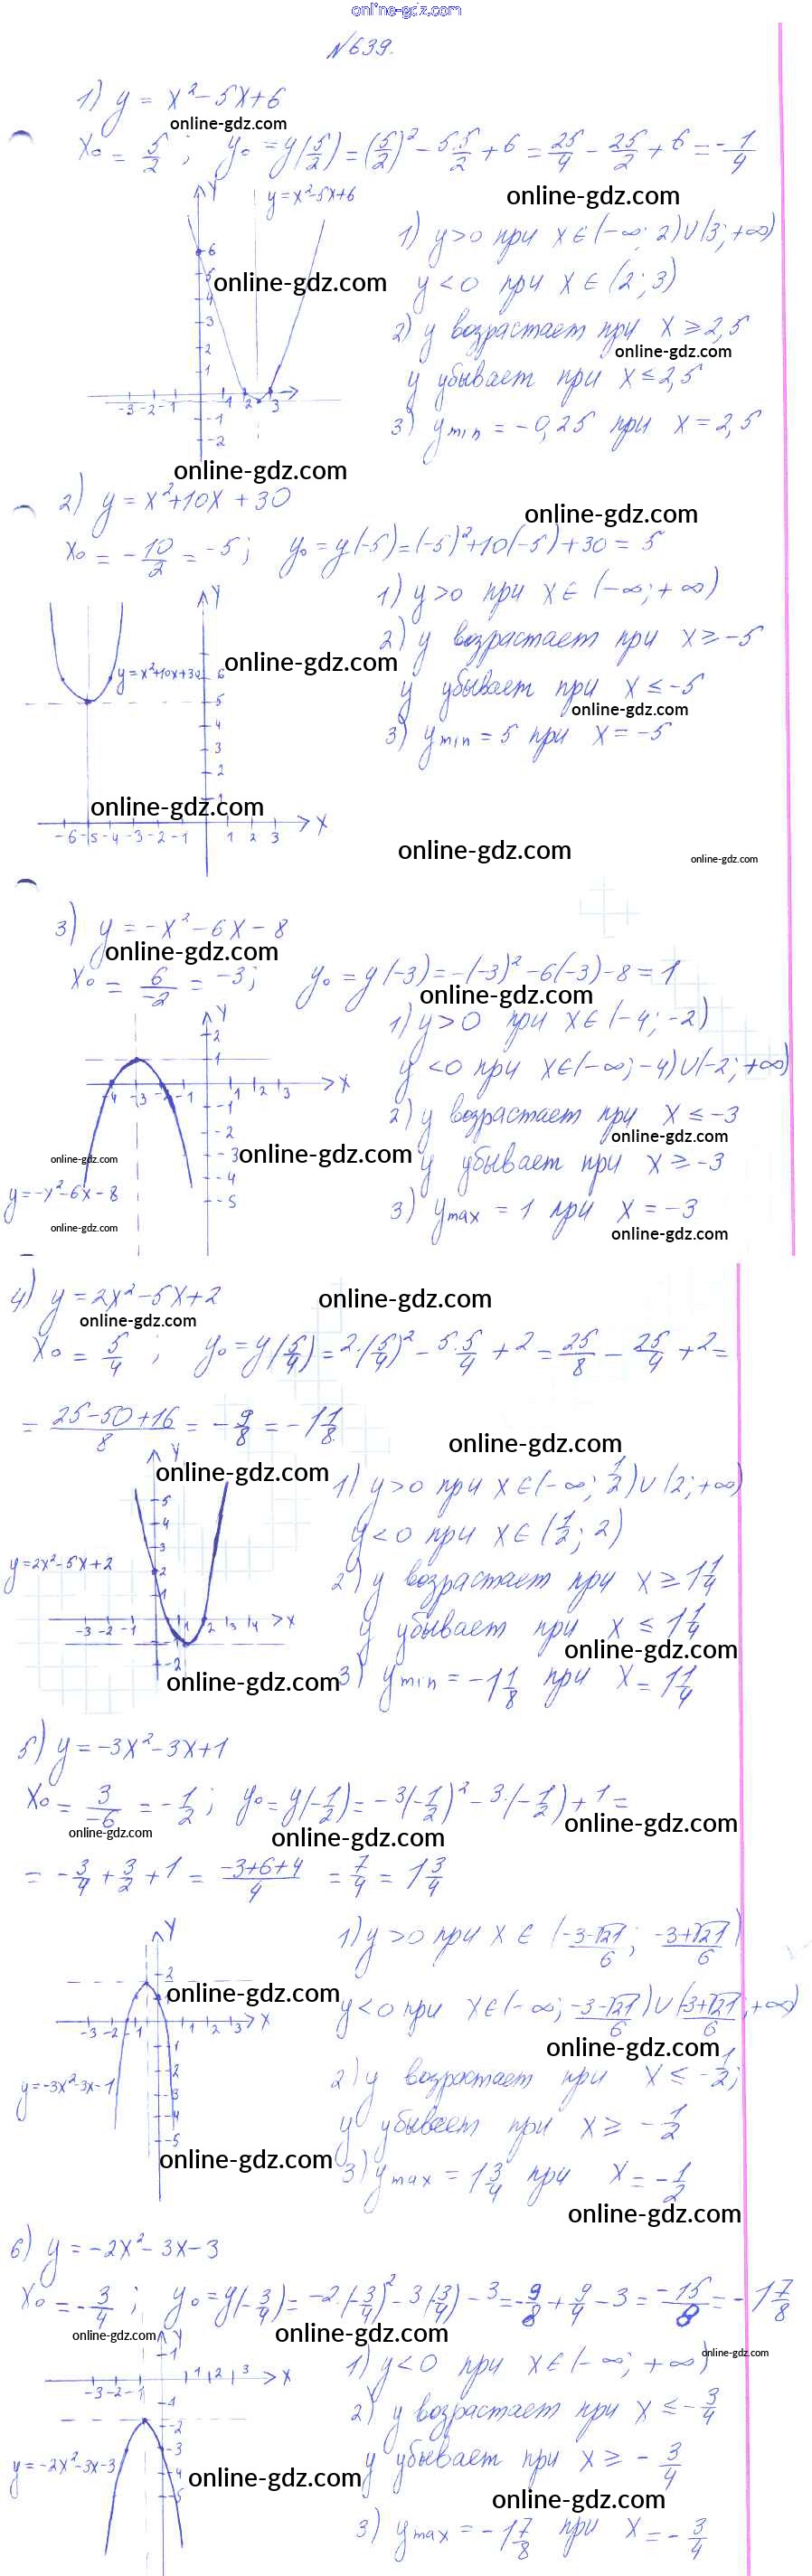 online-gdz.com
№639.
1) y = x² - 5x + 6
online-gdz.com
x₀ = 5/2 ; y₀ = y(5/2) = (5/2)² - 5·5/2 + 6 = 25/4 - 25/2 + 6 = -1/4
online-gdz.com
Y
y = x²-5x+6
1) y > 0 при x ∈ (-∞; 2) ∪ (3; +∞)
online-gdz.com
y < 0 при x ∈ (2; 3)
2) y возрастает при x ≥ 2,5
online-gdz.com
y убывает при x ≤ 2,5
3) y min = -0,25 при x = 2,5
6
5
4
3
2
1
-3 -2 -1 1 2 3
-1
-2
online-gdz.com
2) y = x² + 10x + 30
online-gdz.com
x₀ = -10/2 = -5 ; y₀ = y(-5) = (-5)² + 10(-5) + 30 = 5
Y
1) y > 0 при x ∈ (-∞; +∞)
2) y возрастает при x ≥ -5
online-gdz.com
y = x²+10x+30
y убывает при x ≤ -5
online-gdz.com
3) y min = 5 при x = -5
6
5
4
3
2
1
online-gdz.com
-6 -5 -4 -3 -2 -1 1 2 3 X
online-gdz.com
online-gdz.com
3) y = -x² - 6x - 8
online-gdz.com
x₀ = 6/-2 = -3 ; y₀ = y(-3) = -(-3)² - 6(-3) - 8 = 1
online-gdz.com
Y
1) y > 0 при x ∈ (-4; -2)
y < 0 при x ∈ (-∞; -4) ∪ (-2; +∞)
2) y возрастает при x ≤ -3
online-gdz.com
y убывает при x ≥ -3
online-gdz.com
online-gdz.com
3) y max = 1 при x = -3
online-gdz.com
2
1
-4 -3 -1 1 2 3 X
-1
-2
-3
-4
-5
y = -x²-6x-8
online-gdz.com
4) y = 2x² - 5x + 2
online-gdz.com
online-gdz.com
x₀ = 5/4 ; y₀ = y(5/4) = 2·(5/4)² - 5·5/4 + 2 = 25/8 - 25/4 + 2 =
= 25-50+16/8 = -9/8 = -1 1/8
online-gdz.com
Y
online-gdz.com
1) y > 0 при x ∈ (-∞; 1/2) ∪ (2; +∞)
y < 0 при x ∈ (1/2; 2)
y = 2x²-5x+2
2) y возрастает при x ≥ 1 1/4
y убывает при x ≤ 1 1/4
online-gdz.com
5
4
3
2
1
-3 -2 -1 1 2 3 4 X
-2
online-gdz.com
3) y min = -1 1/8 при x = 1 1/4
5) y = -3x² - 3x + 1
x₀ = 3/-6 = -1/2 ; y₀ = y(-1/2) = -3(-1/2)² - 3·(-1/2) + 1 =
online-gdz.com
online-gdz.com
online-gdz.com
= -3/4 + 3/2 + 1 = -3+6+4/4 = 7/4 = 1 3/4
Y
1) y > 0 при x ∈ (-3-√21/6 ; -3+√21/6)
2
online-gdz.com
y < 0 при x ∈ (-∞; -3-√21/6) ∪ (-3+√21/6; +∞)
-3 -2 -1 1 2 3 X
online-gdz.com
2) y возрастает при x ≤ -1/2;
y = -3x²-3x-1
1
-2
-3
-4
-5
y убывает при x ≥ -1/2
online-gdz.com
3) y max = 1 3/4 при x = -1/2
online-gdz.com
6) y = -2x² - 3x - 3
x₀ = -3/4 ; y₀ = y(-3/4) = -2·(-3/4)² - 3(-3/4) - 3 = -9/8 + 9/4 - 3 = -15/8 = -1 7/8
online-gdz.com
online-gdz.com
Y
online-gdz.com
1) y < 0 при x ∈ (-∞; +∞)
1
-3 -2 -1 1 2 3 X
-1
-2
-3
-4
-5
2) y возрастает при x ≤ -3/4
y = -2x²-3x-3
y убывает при x ≥ -3/4
online-gdz.com
online-gdz.com
3) y max = -1 7/8 при x = -3/4